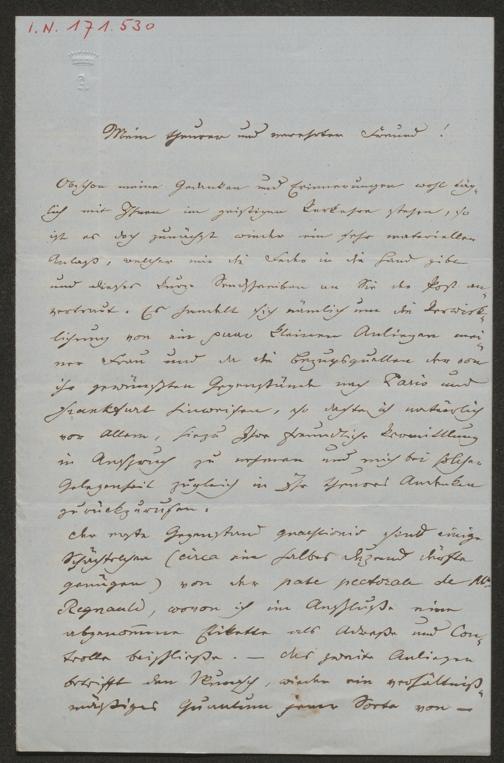 I.N. 171.530
Mein theurer und verehrter Freund!
Obschon meine Gedanken und Erinnerungen wohl täg-
lich mit Ihnen im geistigen Verkehre stehen, so
ist es doch zunächst wieder ein sehr materieller
Anlaß, welcher mir die Feder in die Hand gibt
und dieses kurze Sendschreiben an Sie der Post an-
vertraut. Es handelt sich nämlich um die Verwirk-
lichung von ein paar kleinen Anliegen mei-
ner Frau und da die Bezugsquellen der von
ihr gewünschten Gegenstände nach Paris und
Frankfurt hinweisen, so dachte ich natürlich
vor Allem, hiezu Ihre freundliche Vermittlung
in Anspruch zu nehmen und mich bei solcher
Gelegenheit zugleich in Ihr theures Andenken
zurückzurufen.
Der erste Gegenstand sind einige
Schächtelchen (circa ein halbes Duzend dürfte
genügen) von der pate pectorale de Mr
Regnauld, wovon ich im Anschluße eine
abgenommene Etikette als Adresse und Con-
trolle beischließe. — Das zweite Anliegen
betrifft den Wunsch, wieder ein verhältniß-
mäßiges Quantum jener Sorte von —